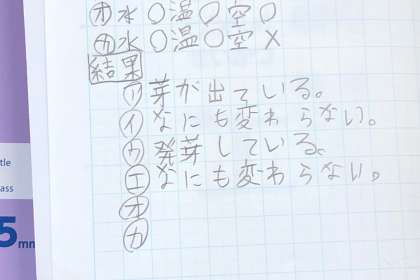 ㋔水〇温〇空〇
㋕水〇温〇空×
結果
㋐芽が出ている。
㋑なにも変わらない。
㋒発芽している。
㋓なにも変わらない。
㋔
㋕
tle
ass
5mm